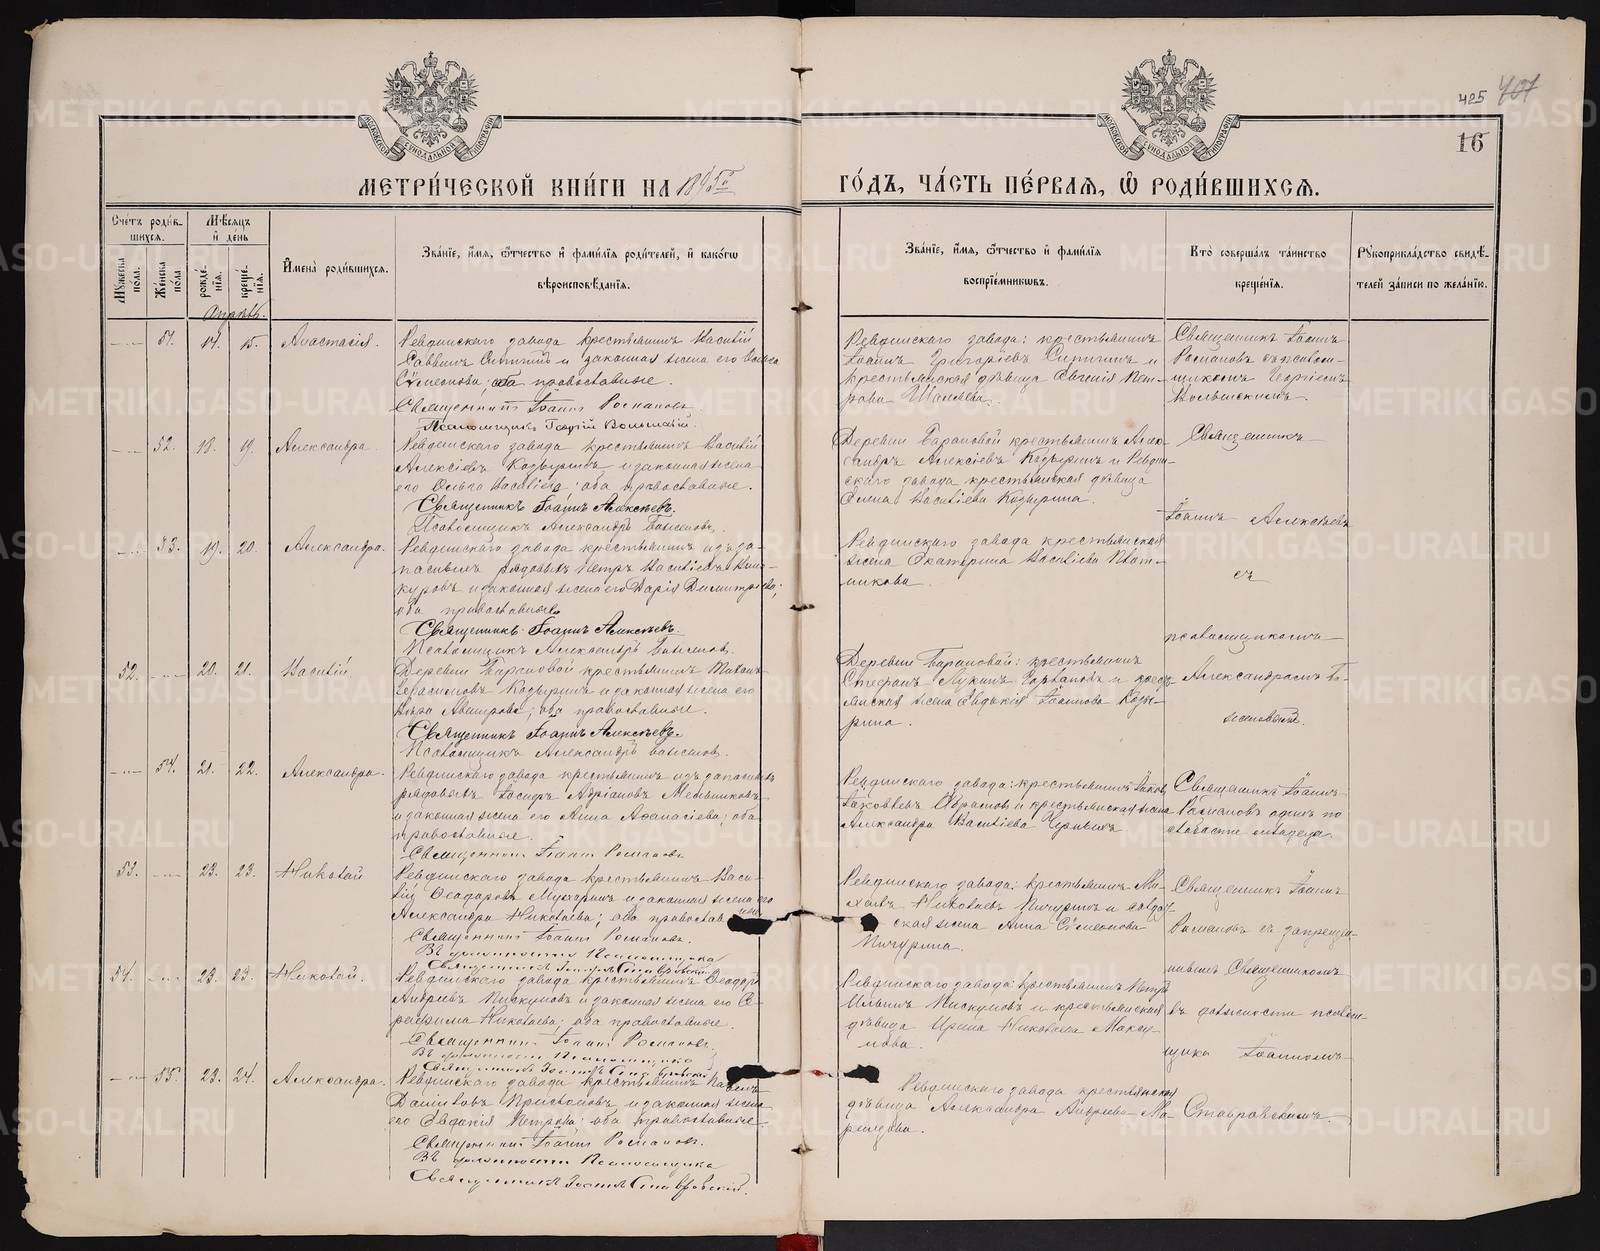 425 407
16
МОСКОВСКОЙ СѴНОДАЛЬНОЙ ТИПОГРАФІИ
МОСКОВСКОЙ СѴНОДАЛЬНОЙ ТИПОГРАФІИ
МЕТРИ́ЧЕСКОЙ КНИ́ГИ НА 1895й
ГО́ДЪ, ЧА́СТЬ ПЕ́РВАѦ, Ѡ РОДИ́ВШИХСѦ.
Сче́тъ роди́в-
шихся.
Мѣ́сяцъ
и҆ де́нь
Мꙋжеска
по́ла.
Же́нска
по́ла.
рожде́-
нїя.
креще́-
нїя.
И҆мена̀ роди́вшихся.
Зва́нїе, и҆́мя, ѻ҆́тчество и҆ фамі́лїя роди́телей, и҆ како́гѡ
вѣроисповѣ́данїя.
Зва́нїе, и҆́мя, ѻ҆́тчество и҆ фамі́лїя
воспрїе́мникѡвъ.
Кто̀ соверша́лъ та́инство
креще́нїя.
Рꙋкоприкла́дство свидѣ́-
телей за́писи по жела́нїю.
Апрѣль.
51. 14. 15. Анастасія.
Ревдинскаго завода крестьянинъ Василій
Саввинъ и законная жена его
Симеонова; оба православные.
Священникъ Іоаннъ Романовъ.
Псаломщикъ Георгій Вольнский.
Ревдинскаго завода: крестьянинъ
Іоаннъ Григоріевъ и
крестьянская дѣвица Евгенія Пет-
рова
Священникъ Іоаннъ
Романовъ съ псалом-
щикомъ Георгіемъ
52. 18. 19. Александра
Ревдинскаго завода крестьянинъ Василій
Алексіевъ Козыринъ и законная жена
его Ольга Васильева; оба православные.
Священникъ Іоаннъ Алексѣевъ.
Псаломщикъ Александръ Баженовъ.
Деревни Барановой крестьянинъ Алек-
сандръ Алексіевъ Козыринъ и Ревдин-
скаго завода крестьянская дѣвица
Васильева Козырина.
Священникъ
Іоаннъ Алексѣевъ
53. 19. 20. Александра.
Ревдинскаго завода крестьянинъ изъ за-
пасныхъ рядовыхъ Петръ Васильевъ
и законная жена его Дарія Димитріева;
оба православные
Священникъ Іоаннъ Алексѣевъ.
Псаломщикъ Александръ Баженовъ.
Ревдинскаго завода крестьянская
жена Екатерина Васильева Плот-
никова.
съ
псаломщикомъ
52. 20. 21. Василій.
Деревни Барановой крестьянинъ
Герасимовъ Козыринъ и законная жена его
оба православные.
Священникъ Іоаннъ Алексѣевъ.
Псаломщикъ Александръ Баженовъ.
Деревни Барановой: крестьянинъ
Стефанъ Лукинъ и
жена Евдокія Іоаннова Козы-
рина.
Александромъ Ба-
женовымъ.
54. 21. 22. Александра.
Ревдинскаго завода крестьянинъ изъ запасныхъ
рядовыхъ Іосифъ Адріановъ Мельниковъ
и законная жена его Анна Аѳанасіева; оба
православные.
Священникъ Іоаннъ Романовъ
Ревдинскаго завода: крестьянинъ Іаковъ
Іаковлевъ Абрамовъ и крестьянская жена
Александра Васильева
Священникъ Іоаннъ
Романовъ одинъ по
слабости младенца.
53. 23. 23. Николай
Ревдинскаго завода крестьянинъ Васи-
лій Ѳеодоровъ и законная жена его
Александра Николаева; оба православ
Священникъ Іоаннъ Романовъ.
Въ должности Псаломщика
Священникъ Іоаннъ Ставровскій
Ревдинскаго завода: крестьянинъ Ми-
хаилъ Николаевъ Пичугинъ и
ская жена Анна Симеонова
Пичугина.
Священникъ Іоаннъ
Романовъ съ запрещен-
нымъ Священникомъ
54. 23. 23. Николай.
Ревдинскаго завода крестьянинъ Ѳеодоръ
Андреевъ Пискуновъ и законная жена его Се-
рафима Николаева; оба православные.
Священникъ Іоаннъ Романовъ.
Въ должности Псаломщика
Священникъ Іоаннъ Ставровскій
Ревдинскаго завода: крестьянинъ Петръ
Ильинъ Пискуновъ и крестьянская
дѣвица Ирина Николаева Макси-
мова.
въ должности псалом-
щика Іоанномъ
55. 23. 24. Александра.
Ревдинскаго завода крестьянинъ Павелъ
Даниловъ и законная жена
его Евдокія Петрова; оба православные.
Священникъ Іоаннъ Романовъ.
Въ должности Псаломщика
Священникъ Іоаннъ Ставровскій.
Ревдинскаго завода крестьянская
дѣвица Александра Андреева
Ставровскимъ.
METRIKI.GASO-URAL.RU